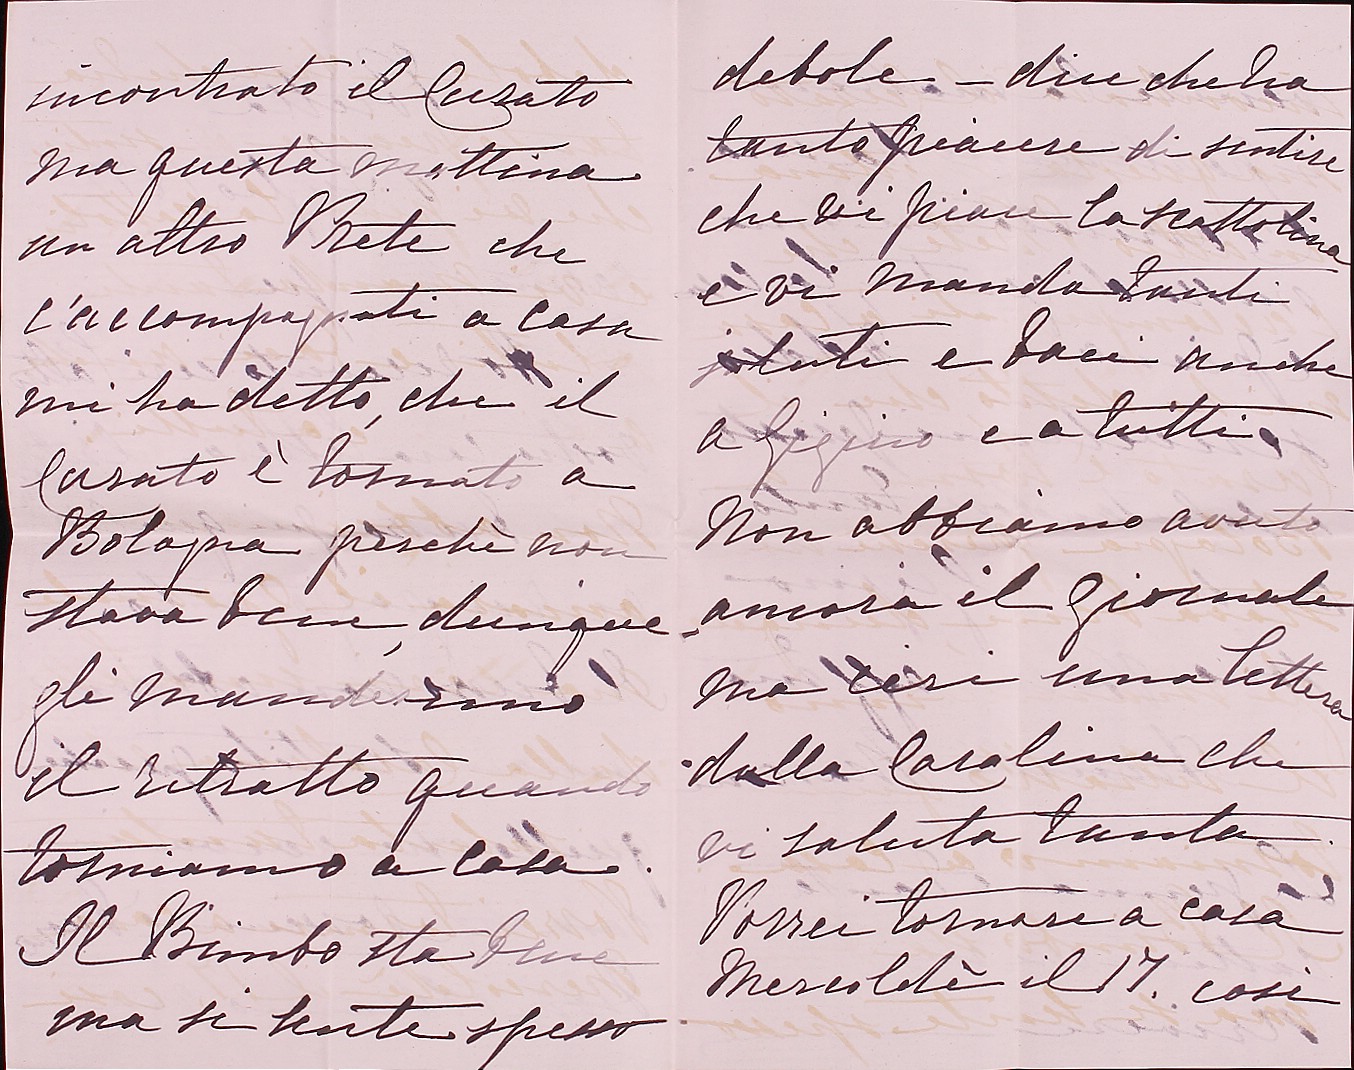 incontrato il Curato
ma questa mattina
un altro Prete che
c'accompagnati a casa
mi ha detto, che il
Curato è tornato a
Bologna perchè non
stava bene, dunque
gli manderemo
il ritratto quando
torniamo a casa.
Il Bimbo sta bene
ma si sente spesso
debole. – dice che ha
tanto piacere di sentire
che vi piace la scattolina
e vi manda tanti
saluti e baci anche
a Gigino e a tutti.
Non abbiamo avuto
ancora il giornale
ma ieri una lettera
dalla Carolina che
vi saluta tanto.
Vorrei tornare a casa
Mercoldè il 17. così